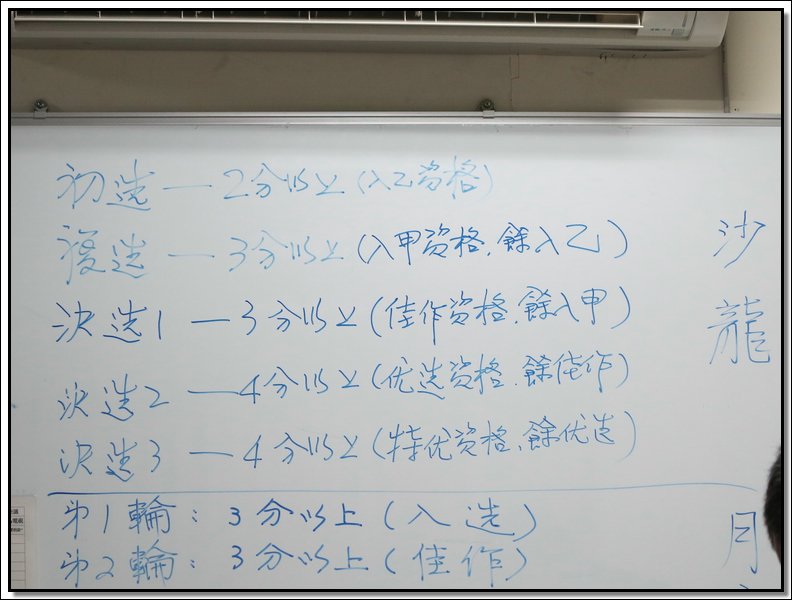 初选 — 2分以上 (入乙資格)
複选 — 3分以上 (入甲資格, 餘入乙)
決选1 — 3分以上 (佳作資格, 餘入甲)
決选2 — 4分以上 (优选資格, 餘佳作)
決选3 — 4分以上 (特优資格, 餘优选)
沙龍
第1輪: 3分以上 (入选)
第2輪: 3分以上 (佳作)
月